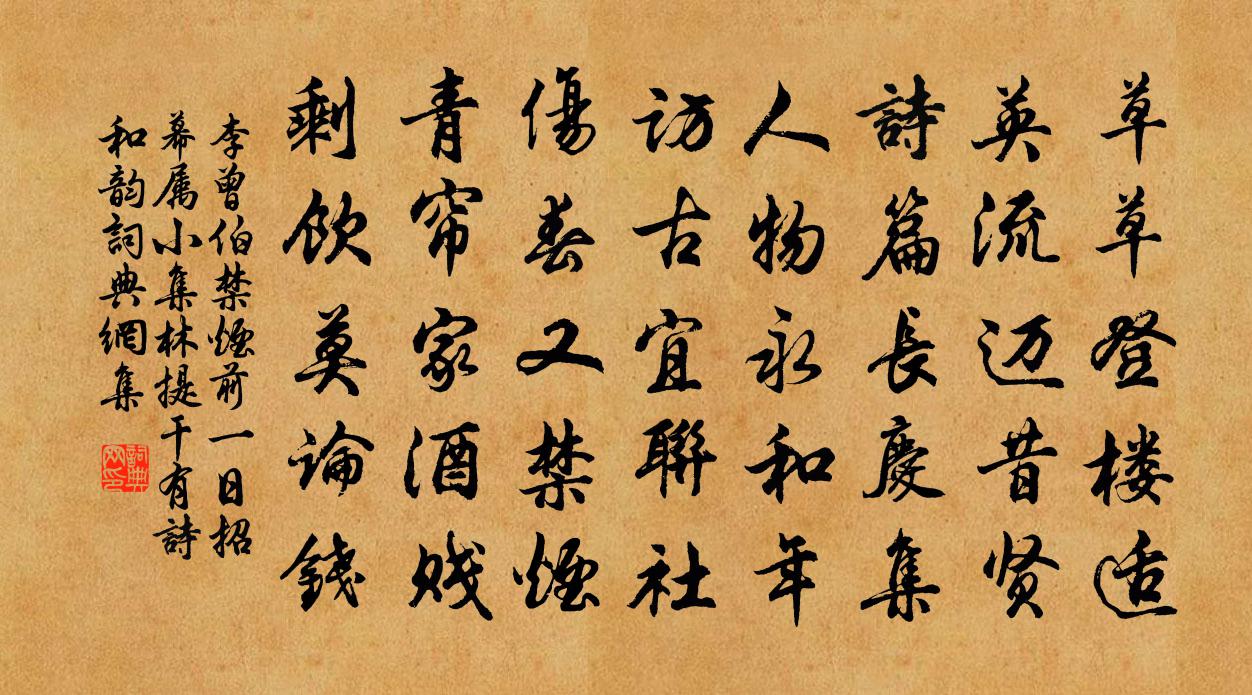 草草登楼适
英流迈昔贤
詩篇長慶集
人物永和年
访古宜聯社
傷春又禁煙
青帘家酒贱
剩饮莫論錢
李曾伯禁煙前一日招
幕属小集林提干有詩
和韵詞典網集
詞典
网印